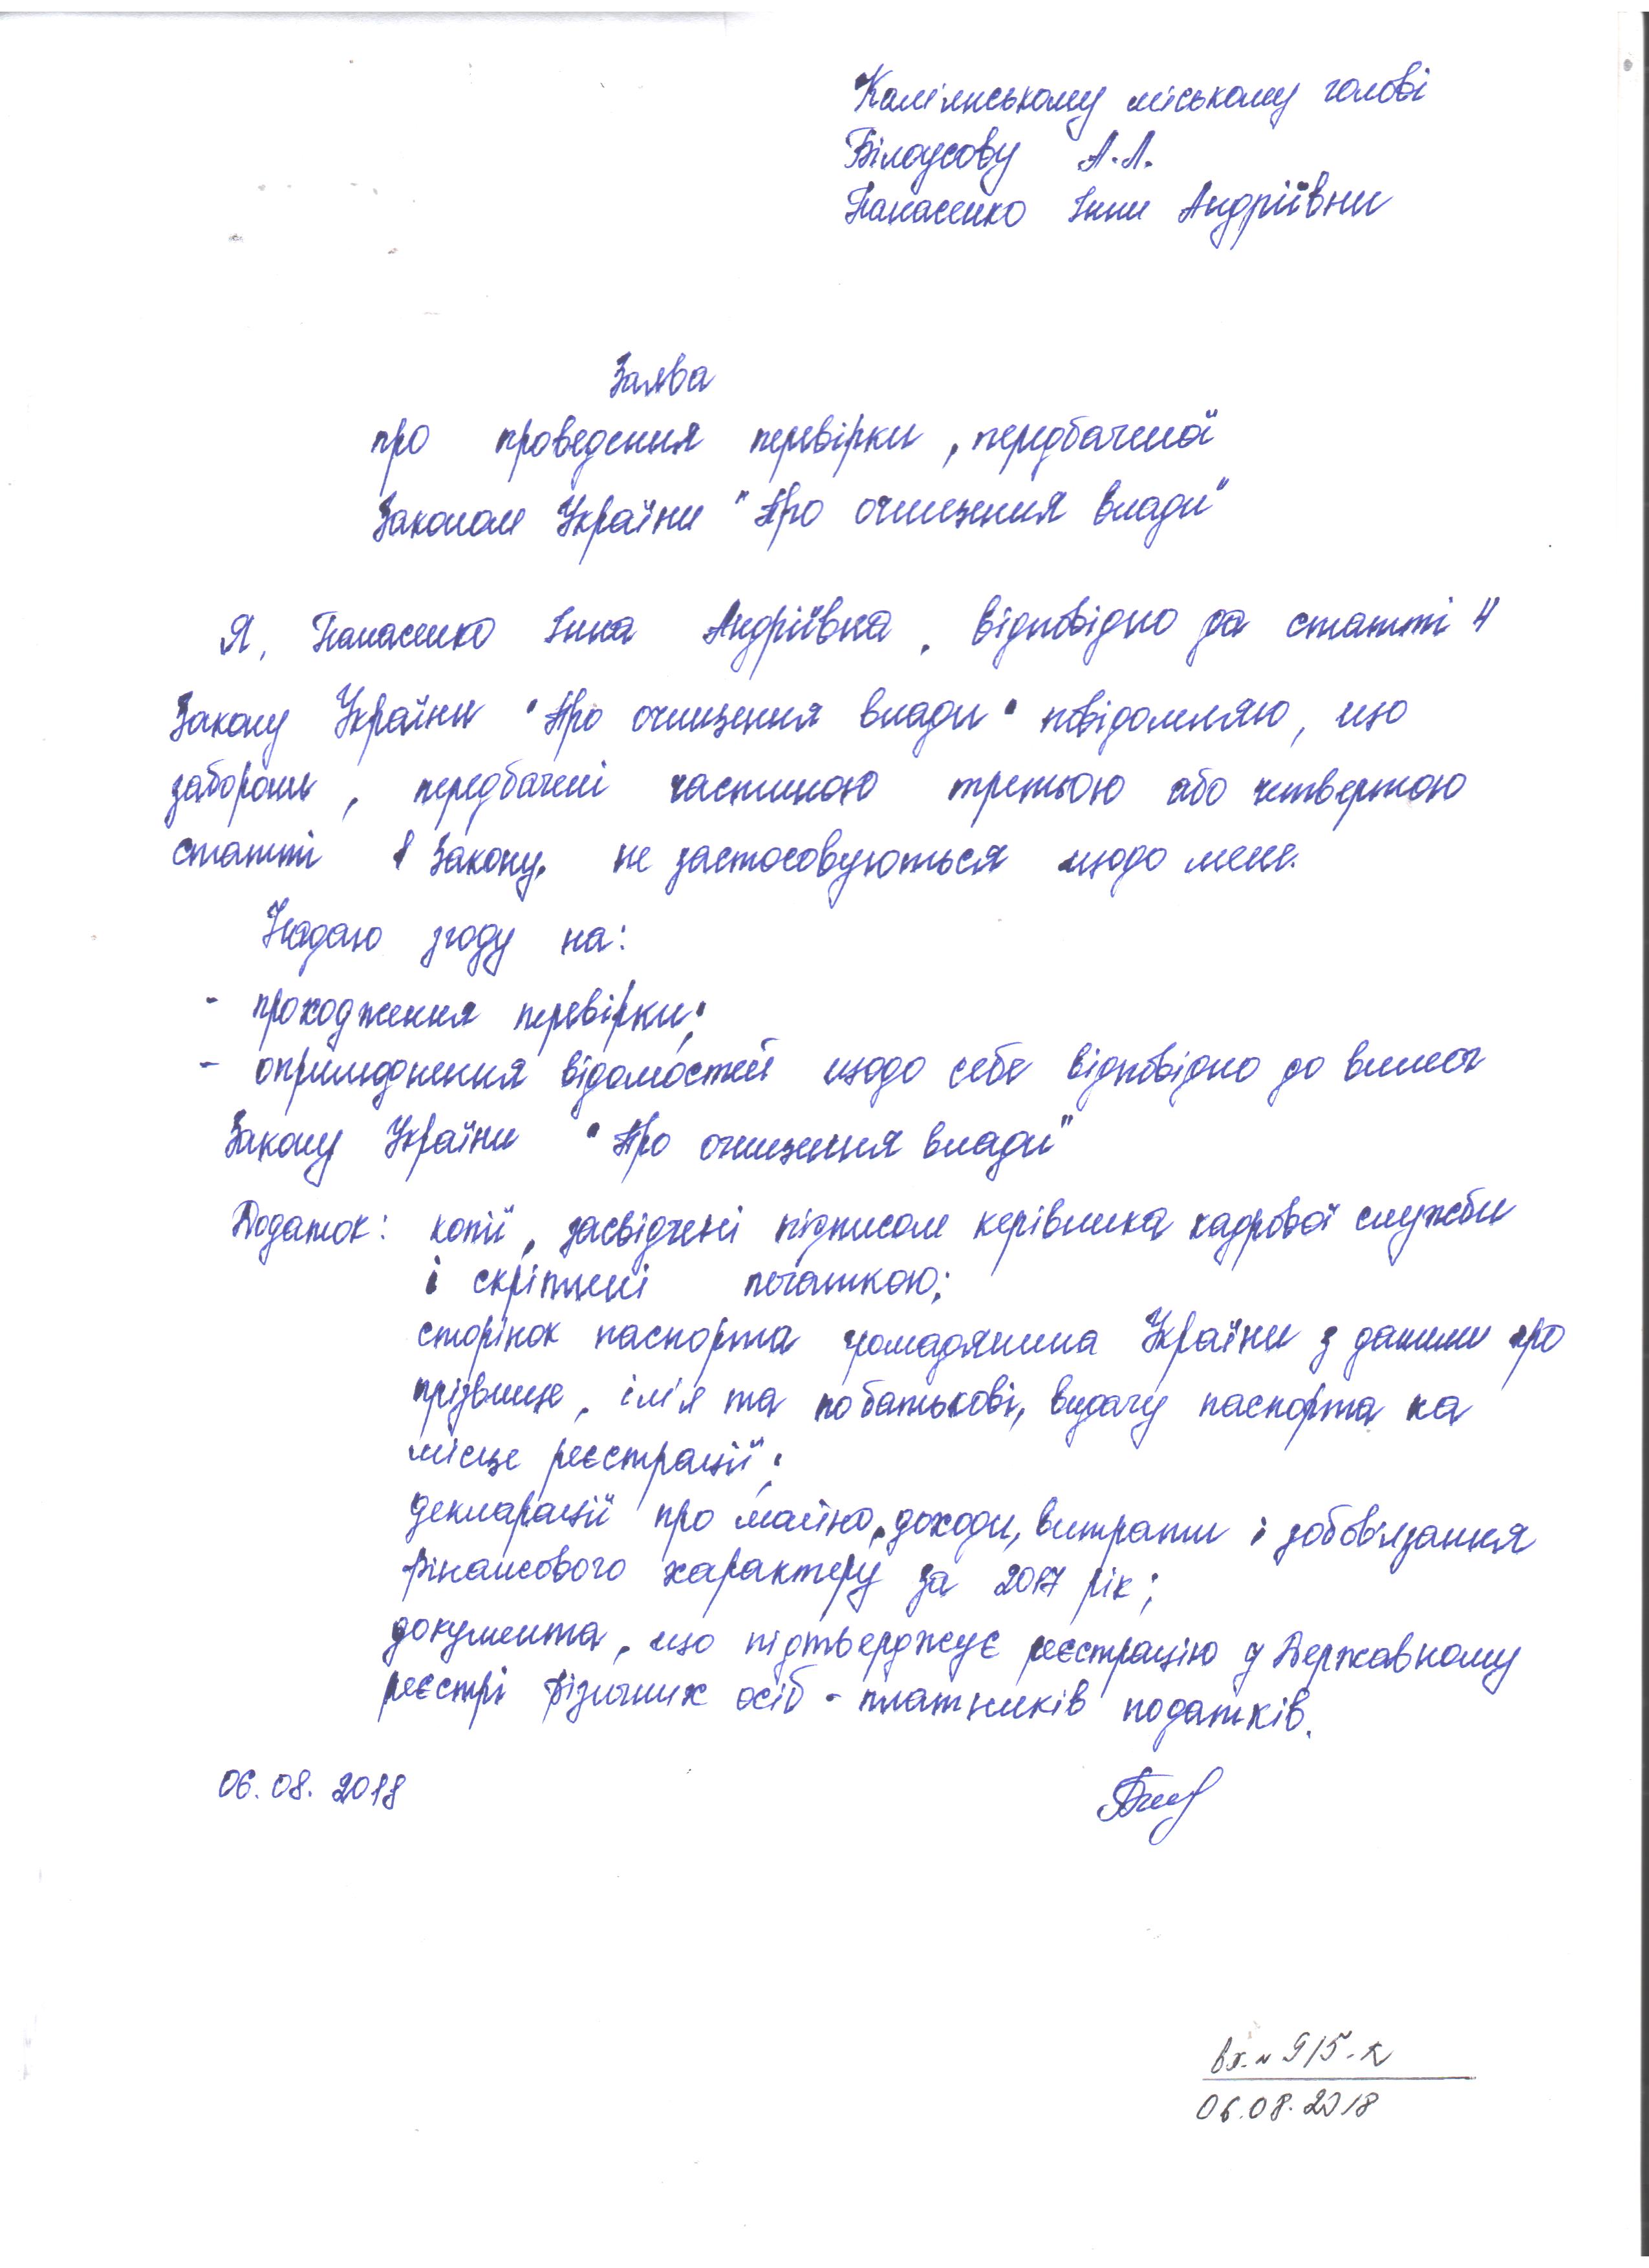 Кам'янському міському голові
Білоусову А.Л.
Панасенко Інни Андріївни
Заява
про проведення перевірки, передбаченої
Законом України "Про очищення влади"
Я, Панасенко Інна Андріївна, відповідно до статті 4
Закону України "Про очищення влади" повідомляю, що
заборони, передбачені частиною третьою або четвертою
статті 1 Закону, не застосовуються щодо мене.
Надаю згоду на:
- проходження перевірки;
- оприлюднення відомостей щодо себе відповідно до вимог
Закону України "Про очищення влади"
Додаток: копії, засвідчені підписом керівника кадрової служби
і скріплені печаткою:
сторінок паспорта громадянина України з даними про
прізвище, ім'я та по батькові, видачу паспорта на
місце реєстрації;
декларації про майно, доходи, витрати і зобов'язання
фінансового характеру за 2017 рік;
документа, що підтверджує реєстрацію у Державному
реєстрі фізичних осіб - платників податків.
06.08.2018
вх. № 915-к
06.08.2018